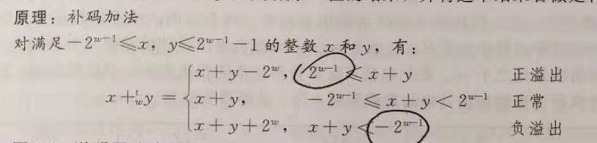 原理：补码加法
对满足-2ʷ⁻¹≤x, y≤2ʷ⁻¹-1的整数x和y，有：
x+y-2ʷ, 2ʷ⁻¹≤x+y 正溢出
x+ᵗwy= x+y, -2ʷ⁻¹≤x+y<2ʷ⁻¹ 正常
x+y+2ʷ, x+y<-2ʷ⁻¹ 负溢出